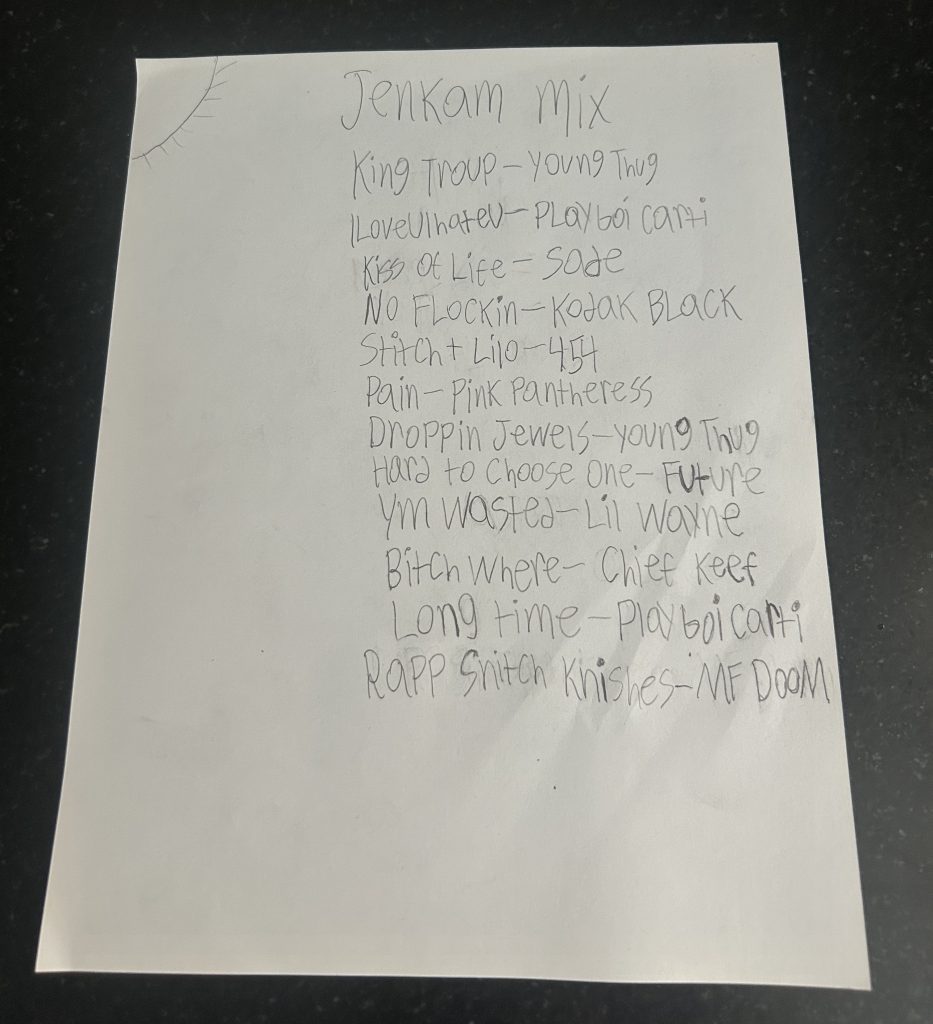 Jenkam Mix
King Troup - Young Thug
ILoveUIhateU - Playboi Carti
Kiss Of Life - Sade
No Flockin - Kodak BLACK
Stitch + Lilo - 454
Pain - Pink Pantheress
Droppin Jewels - Young Thug
Hard to Choose One - Future
Ym Wasted - Lil Wayne
Bitch Where - Chief Keef
Long time - Playboi Carti
Rapp Snitch Knishes - MF DOOM